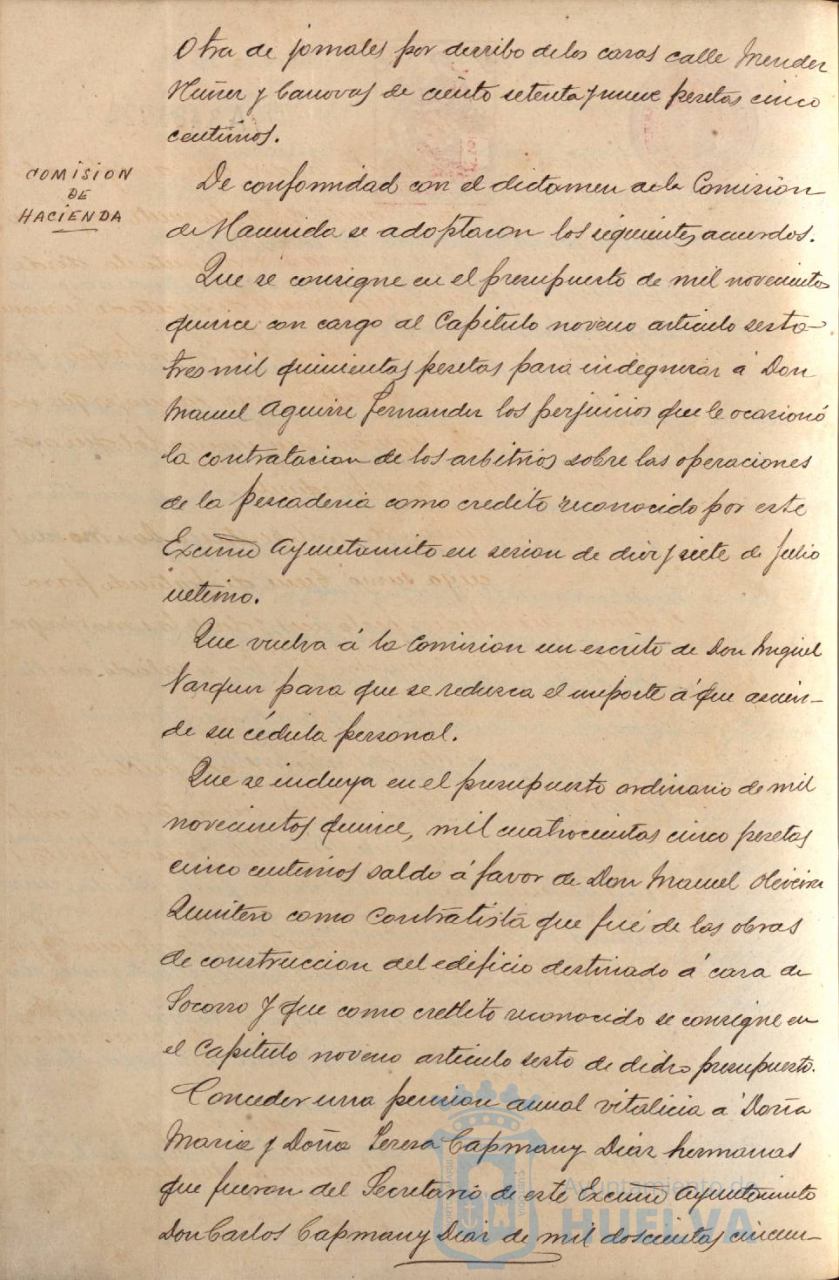 Otra de jornales por derribo de las casas calle Mendez
Nuñez y Canovas de ciento setenta y nueve pesetas cinco
centimos.
COMISION
DE
HACIENDA
De conformidad con el dictamen de la Comision
de Hacienda se adoptaron los siguientes acuerdos.
Que se consigne en el presupuesto de mil novecientos
quince con cargo al Capitulo noveno articulo sesto
tres mil quinientas pesetas para indegnizar á Don
Manuel Aguirre Fernandez los perjuicios que le ocasionó
la contratacion de los arbitrios sobre las operaciones
de la pescaderia como credito reconocido por este
Excmo Ayuntamito en sesion de diez y siete de Julio
ultimo.
Que vuelva á la Comision un escrito de Don Miguel
Vazquez para que se reduzca el importe á que ascien-
de su cédula personal.
Que se incluya en el presupuesto ordinario de mil
novecientos quince, mil cuatrocientas cinco pesetas
cinco centimos saldo á favor de Don Manuel Oliveira
Quintero como Contratista que fué de las obras
de construccion del edificio destinado á casa de
Socorro y que como credito reconocido se consigne en
el Capitulo noveno articulo sesto de dicho presupuesto.
Conceder una pension anual vitalicia á Doña
Maria y Doña Teresa Capmany Diaz hermanas
que fueron del Secretario de este Excmo Ayuntamiento
Don Carlos Capmany Diaz de mil doscientas cincuen-
Ayuntamiento de
HUELVA